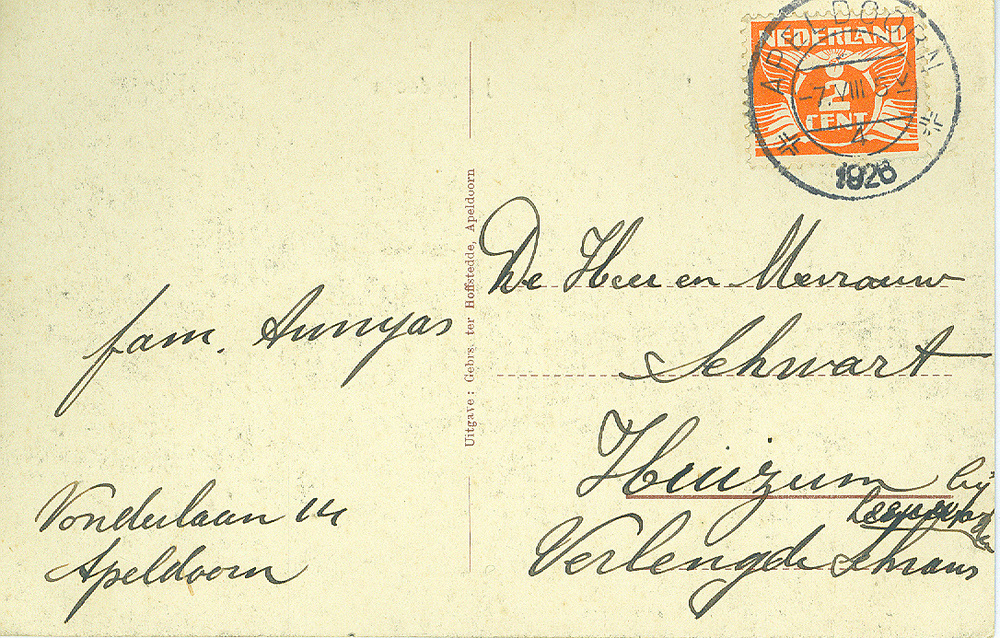 NEDERLAND
2
CENT
APELDOORN
-7.VIII
4
1926
Uitgave: Gebrs. ter Hoffstedde, Apeldoorn
De Heer en Mevrouw
Schwart
Huizum bij
Leeuwarden
Verlengde Schrans
fam.
Vonderlaan 14
Apeldoorn